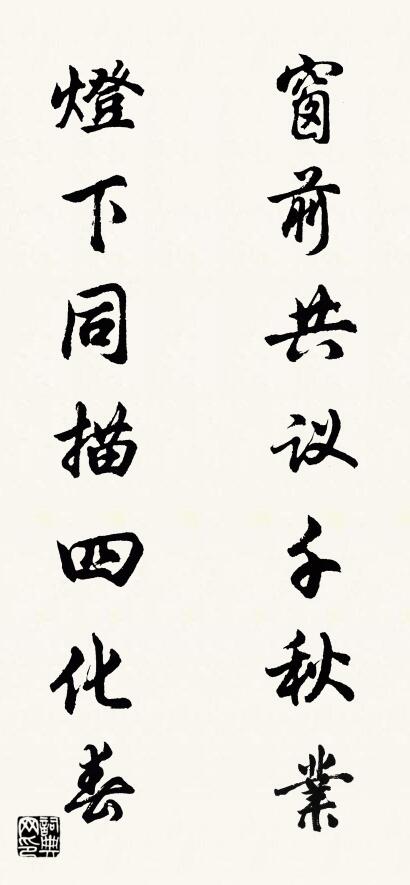 窗前共议千秋業
燈下同描四化春
詞典网印